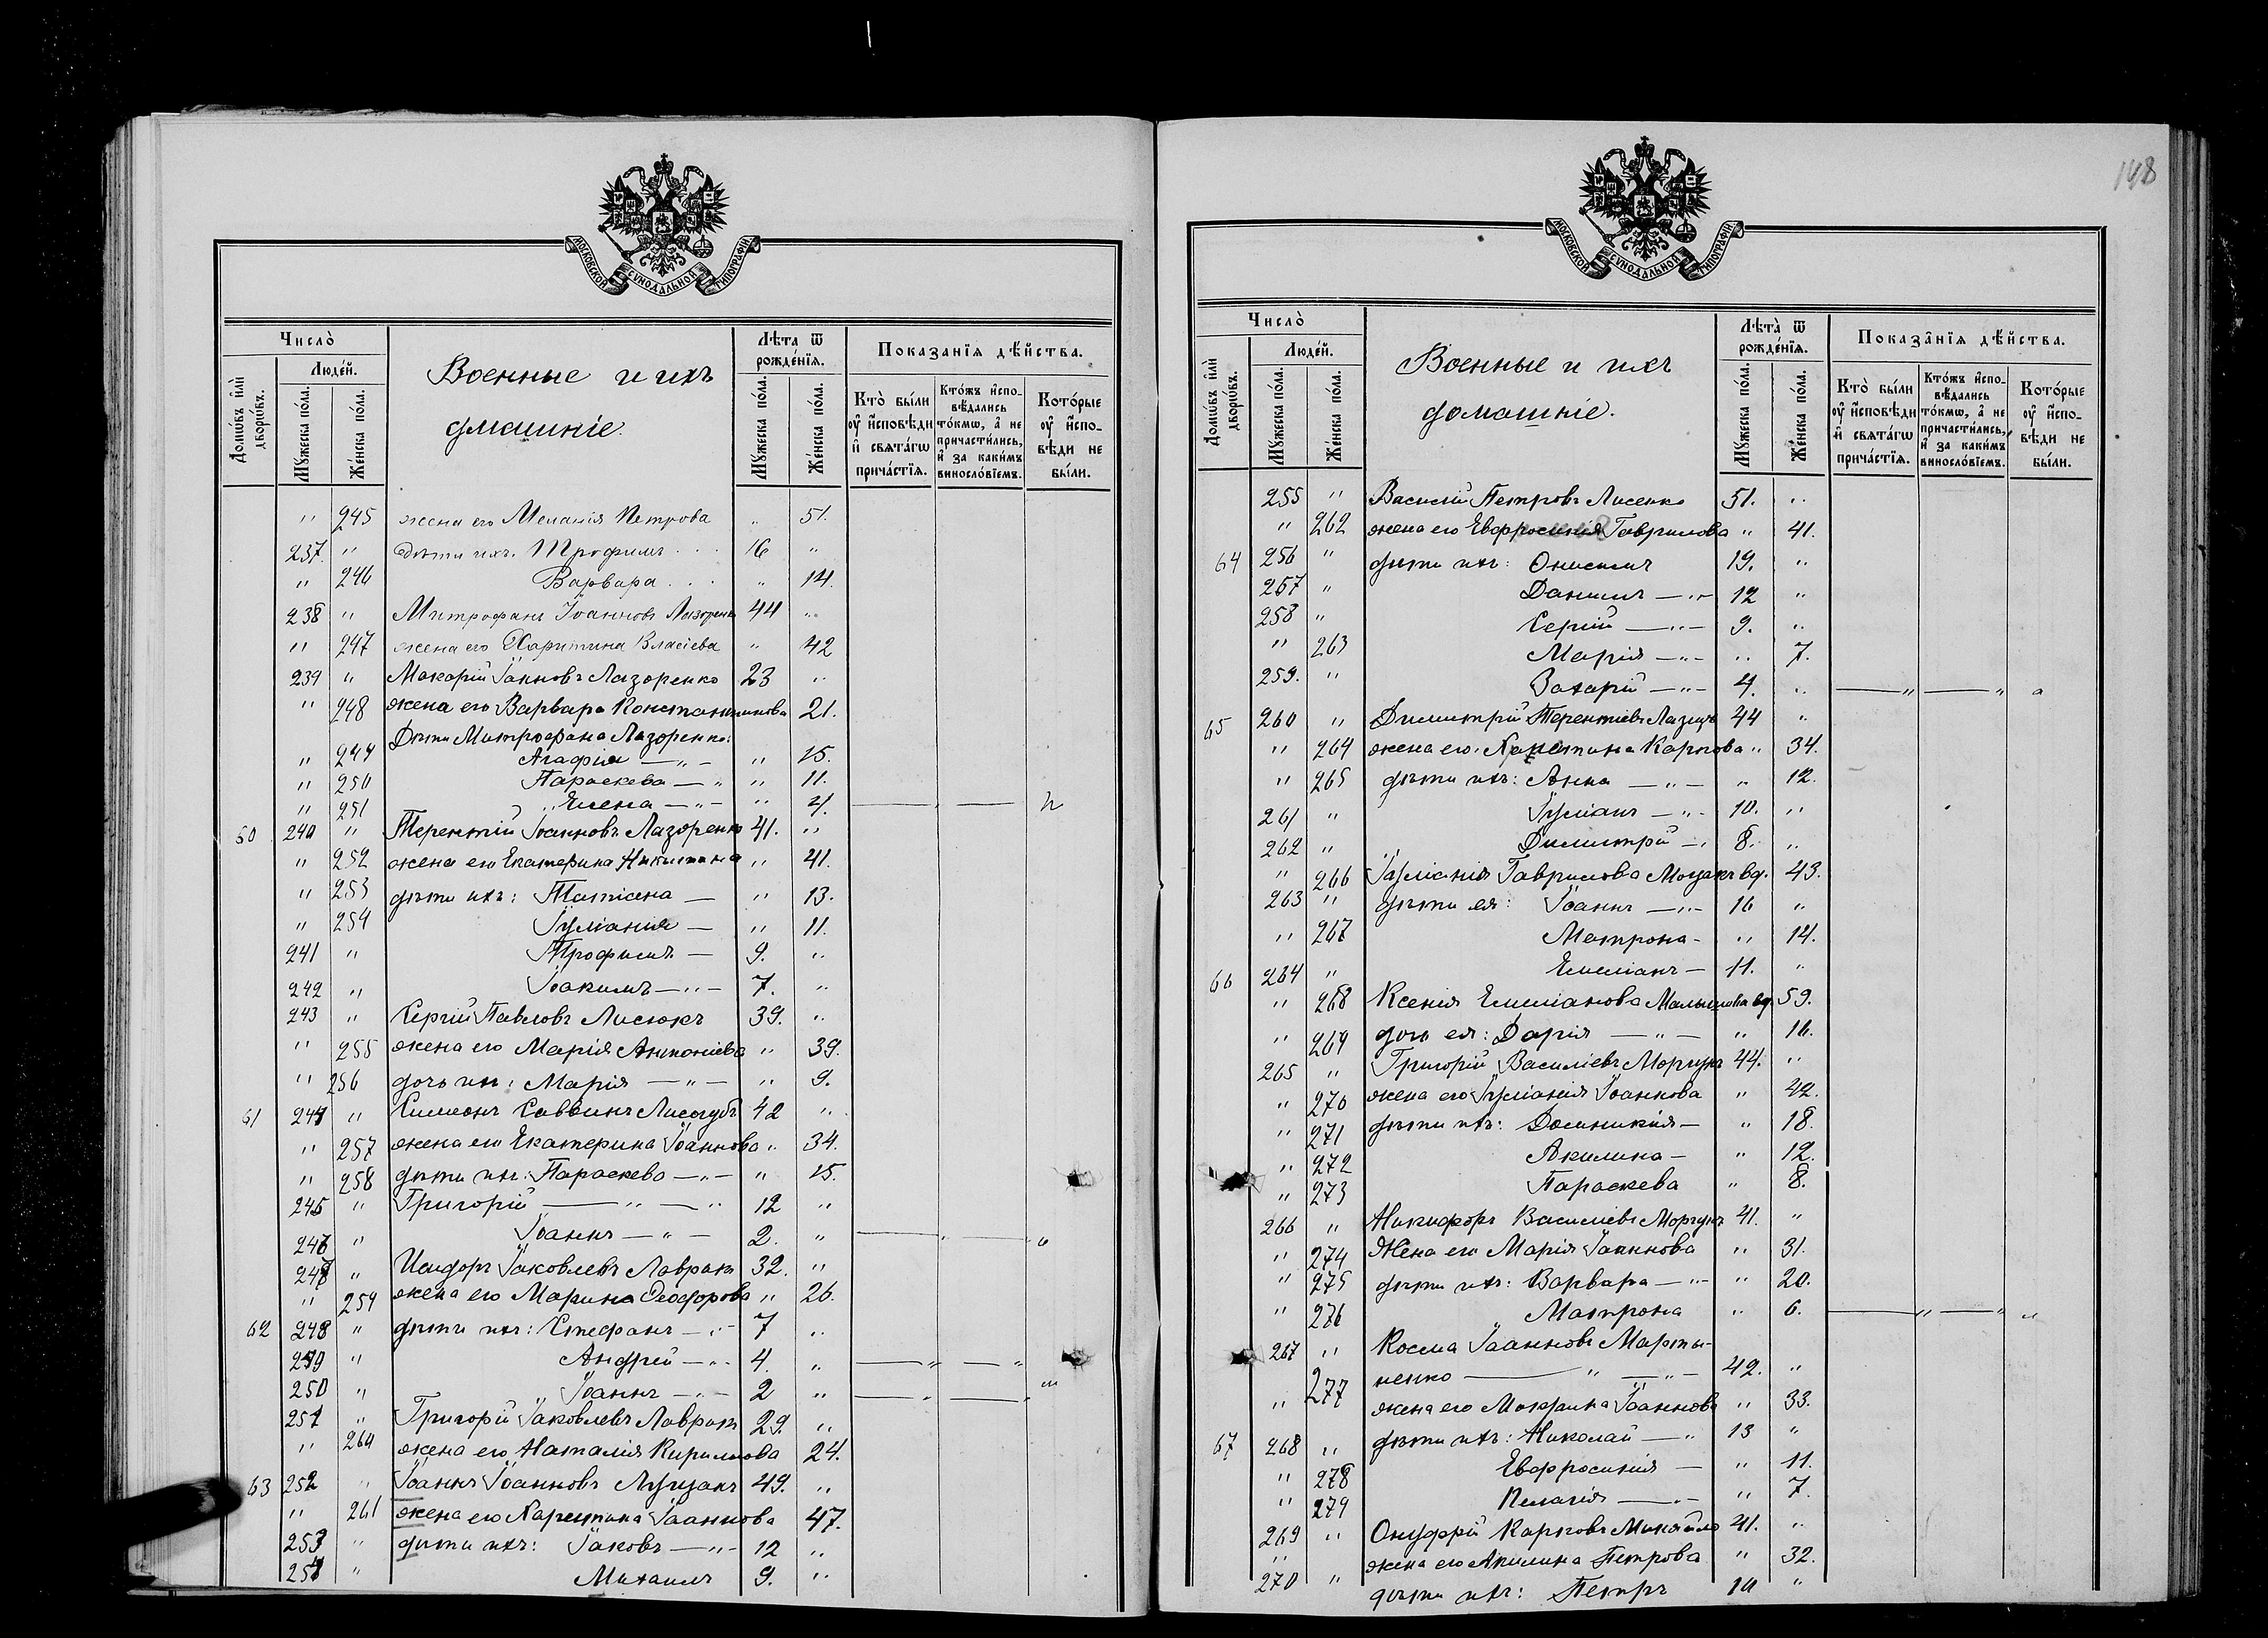 148
МОСКОВСКОЙ СѴНОДАЛЬНОЙ ТИПОГРАФІИ
Число̀
Людéй.
Домѡ́въ и҆лѝ дворѡ́въ.
Мꙋ́жеска по́ла.
Же́нска по́ла.
Военные и ихъ
дмашніе.
Лѣ́та ѿ рожде́нїѧ.
Мꙋ́жеска по́ла.
Же́нска по́ла.
Показа̑нїѧ дѣ́йства.
Кто̀ бы́ли оу҆ и҆сповѣ́ди и҆ свѧта́гѡ прича́стїѧ.
Кто́жъ и҆спо-вѣ́дались то́кмѡ, а҆ не причасти́лись, и҆ за каки́мъ винослѡ́вїемъ.
Кото́рые оу҆ и҆спо-вѣ́ди не бы́ли.
" 245 жена его Меланія Петрова " 51.
237. " дѣти ихъ. Трофимъ 16 "
" 246 Варвара " 14.
238 " Митрофанъ Іоанновъ Лазоренко 44 "
" 247 жена его Харитина Власіева " 42
239 " Макарій Іоанновъ Лазоренко 23 "
" 248 жена его Варвара Константинова 21.
Дѣти Митрофана Лазоренко:
" 249 Агафія — " — " 15.
" 250 Параскева — " " 11.
" 251 Елена — " — " 4.
60 240 " Терентій Іоанновъ Лазоренко 41. "
" 252 жена его Екатерина Никитина " 41.
" 253 дѣти ихъ: Татіана — " 13.
" 254 Іуліанія — " 11.
241 " Трофимъ — 9. "
242 " Іоакимъ — " — 7. "
243 " Сергій Павловъ Лисюкъ 39. "
" 255 жена его Марія Антоніева " 39.
" 256 дочь ихъ: Марія — " — " 9.
61 244 " Симеонъ Саввинъ Лисогубъ 42 "
" 257 жена его Екатерина Іоаннова " 34.
" 258 дѣти ихъ: Параскева — " — " 15.
245 " Григорій — " — " 12 "
246 " Іоаннъ — " — 2. "
247 " Исидоръ Іаковлевъ Лавракъ 32. "
" 259 жена его Марина Ѳеодорова " 26.
62 248 " дѣти ихъ: Стефанъ — " — 7 "
249 " Андрей — " — 4. "
250 " Іоаннъ — " — 2 "
251 " Григорій Іаковлевъ Лавракъ 29. "
" 260 жена его Наталія Кириллова 24.
63 252 " Іоаннъ Іоанновъ Луцакъ 49. "
" 261 жена его Харитина Іоаннова 47.
253 " дѣти ихъ: Іаковъ — " — 12 "
254 " Михаилъ 9. "
МОСКОВСКОЙ СѴНОДАЛЬНОЙ ТИПОГРАФІИ
Число̀
Людéй.
Домѡ́въ и҆лѝ дворѡ́въ.
Мꙋ́жеска по́ла.
Же́нска по́ла.
Военные и ихъ
домашніе.
Лѣ́та ѿ рожде́нїѧ.
Мꙋ́жеска по́ла.
Же́нска по́ла.
Показа̑нїѧ дѣ́йства.
Кто̀ бы́ли оу҆ и҆сповѣ́ди и҆ свѧта́гѡ прича́стїѧ.
Кто́жъ и҆спо-вѣ́дались то́кмѡ, а҆ не причасти́лись, и҆ за каки́мъ винослѡ́вїемъ.
Кото́рые оу҆ и҆спо-вѣ́ди не бы́ли.
255 " Василій Петровъ Лисенко 51. "
" 262 жена его Евфросинія Гаврилова " 41.
64 256 " дѣти ихъ: Онисимъ 19. "
257 " Даніилъ — " — 12 "
258 " Сергій — " — 9. "
" 263 Марія — " — " 7.
259. " Захарій — " — 4. "
65 260 " Димитрій Терентіевъ 44 "
" 264 жена его: Харитина Карпова " 34.
" 265 дѣти ихъ: Анна — " — " 12.
261 " Іуліанъ — " — 10. "
262 " Димитрій — " 8. "
" 266 Іуліанія Гаврилова вд. 43.
263 " дѣти ея: Іоаннъ — " — 16 "
" 267 Матрона - " 14.
66 264 " Емиліанъ — 11. "
" 268 Ксенія Емиліанова вд. 59.
" 269 дочь ея: Дарія — " — " 16.
265 " Григорій Василіевъ Моргунъ 44. "
" 270 жена его Іуліанія Іоаннова " 42.
" 271 дѣти ихъ: Домникія — " 18.
" 272 Акилина — " 12.
" 273 Параскева " 8.
266 " Никифоръ Василіевъ Моргунъ 41. "
" 274 Жена его Марія Іоаннова " 31.
" 275 дѣти ихъ: Варвара — " — " 20.
" 276 Матрона " 6.
267 " Косма Іоанновъ Марты-
ненко — " — " — 42. "
" 277 жена его Макрина Іоаннова " 33.
67 268 " дѣти ихъ: Николай — " 13 "
" 278 Евфросинія — " 11.
" 279 Пелагія — " — " 7.
269 " Онуфрій Карповъ Михайло 41. "
" жена его Акилина Петрова " 32.
270 " дѣти ихъ: Петръ 10 "